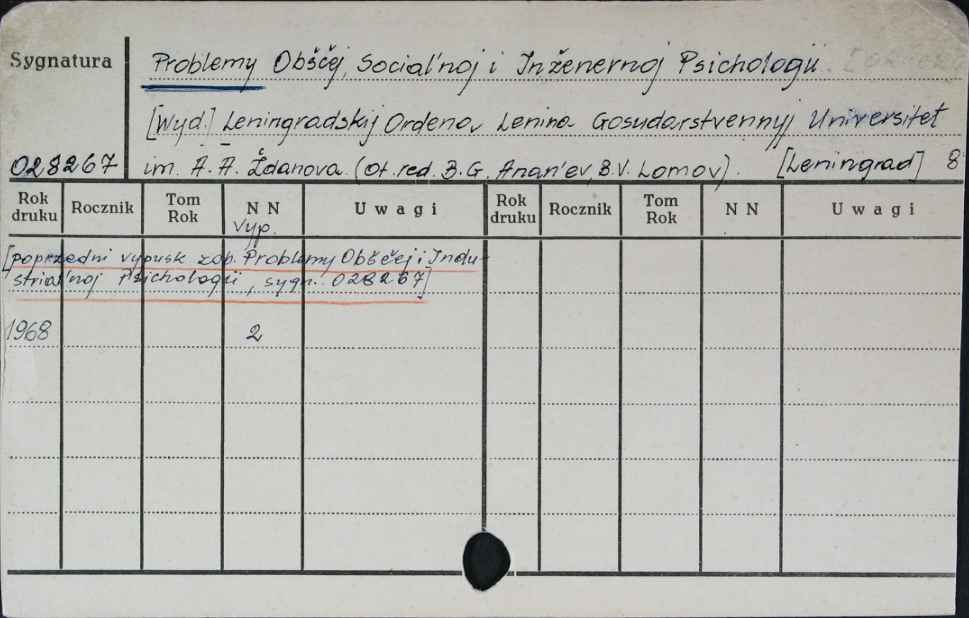 Sygnatura
Problemy Obščej, Social'noj i Inženernoj Psichologii.
[Wyd.] Leningradskij Ordena Lenina Gosudarstvennyj Universitet
028267 im. A. A. Ždanova. (Ot. red. B. G. Anan'ev, B. V. Lomov). [Leningrad] 8
Rok druku Rocznik Tom Rok N N Uwagi Rok druku Rocznik Tom Rok N N Uwagi
Vyp.
[poprzedni vypusk zob. Problemy Obščej i Indu-
strial'noj Psichologii, sygn. 028267]
1968 2